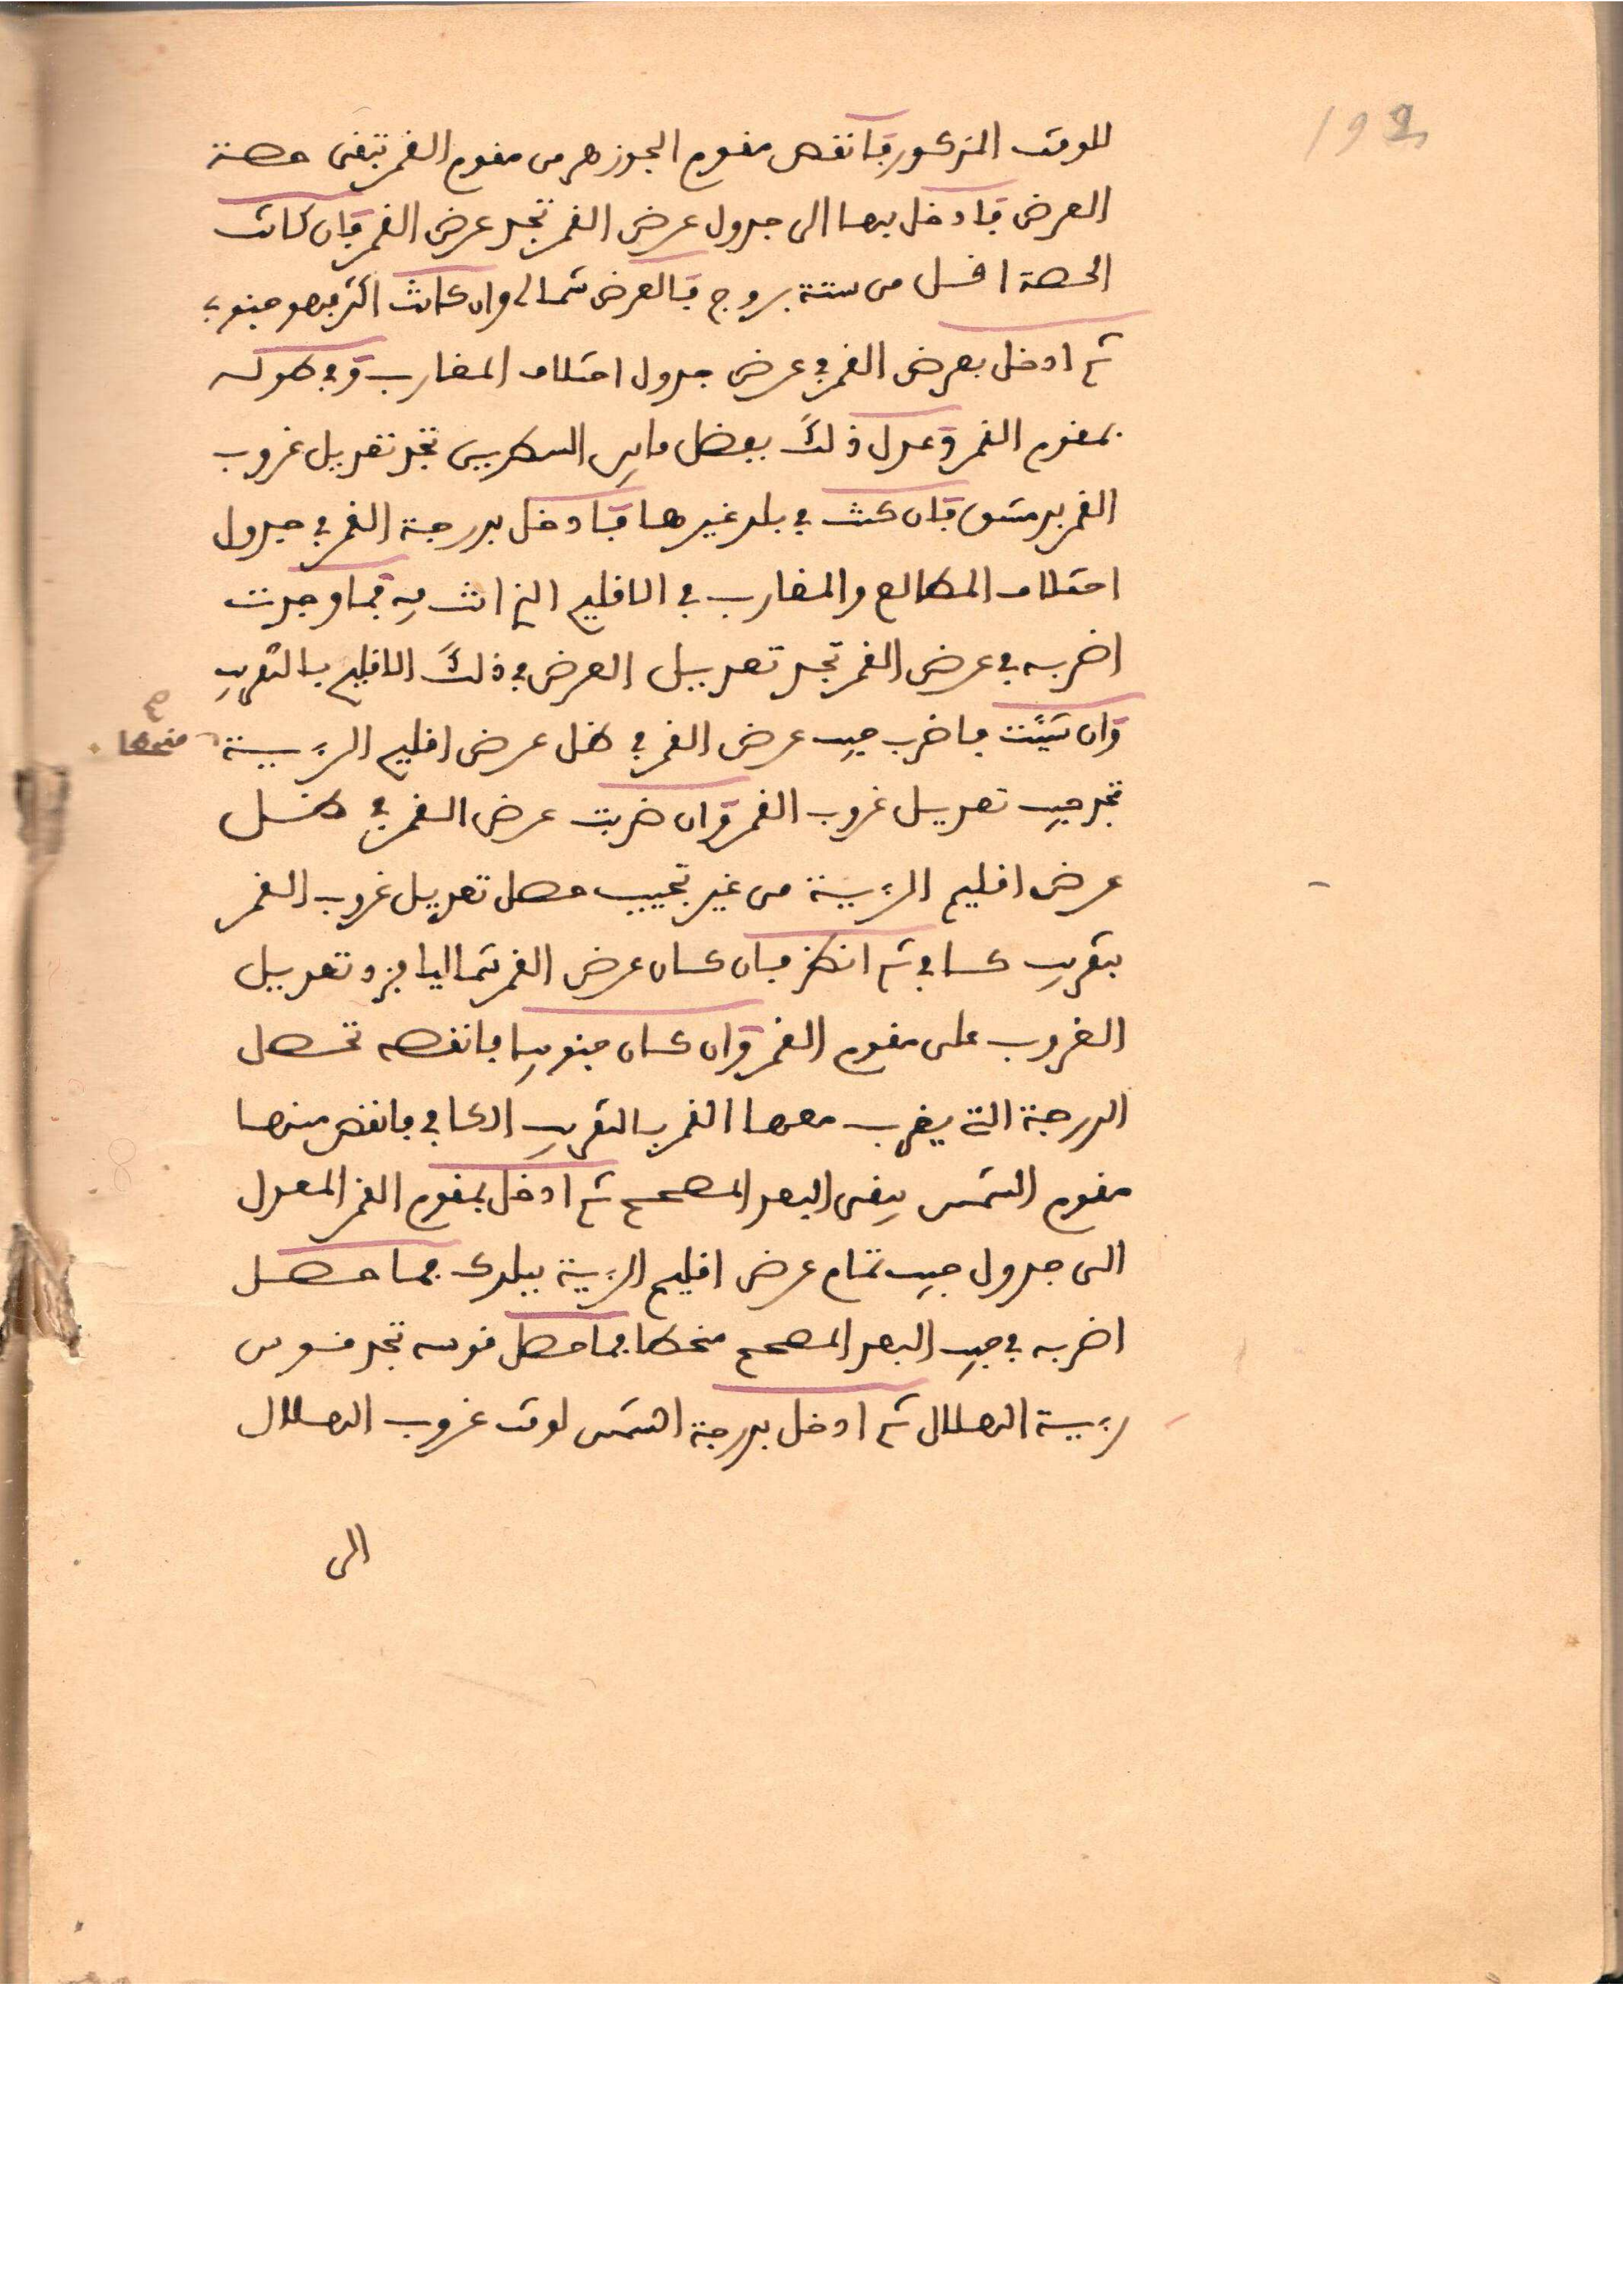 192
للوقت المذكور فانقص مقوم الجوزهر من مقوم القمر تبقى حصة
العرض فادخل بها الى جدول عرض القمر تجد عرض القمر فان كانت
الحصة اقل من ستة بروج فالعرض شمالي وان كانت اكثر فهو جنوبي
ثم ادخل بعرض القمر في عرض جدول اختلاف المغارب وفي طوله
بمقوم القمر وعدل ذلك بفضل مابين السطرين تجد تعديل غروب
القمر بدمشق فان كنت في بلد غيرها فادخل بدرجة القمر في جدول
اختلاف المطالع والمغارب في الاقليم الذي انت فيه فما وجدت
اضربه في عرض القمر تجد تعديل العرض في ذلك الاقليم بالتقريب
وان شئت فاضرب جيب عرض القمر في ظل عرض اقليم الرءية منحطا صح
تجد جيب تعديل غروب القمر وان ضربت عرض القمر في ظل
عرض اقليم الرءية من غير تجييب حصل تعديل غروب القمر
بتقريب كاف ثم انظر فان كان عرض القمر شماليا فزد تعديل
الغروب على مقوم القمر وان كان جنوبيا فانقصه تحصل
الدرجة التي يغرب معها القمر بالتقريب الكافي فانقص منها
مقوم الشمس يبقى البعد المصحح ثم ادخل بمقوم القمر المعدل
الى جدول جيب تمام عرض اقليم الرءية ببلدك فما حصل
اضربه في جيب البعد المصحح منحطا فما حصل قوسه تجد قوس
رءية الهلال ثم ادخل بدرجة الشمس لوقت غروب الهلال
الى